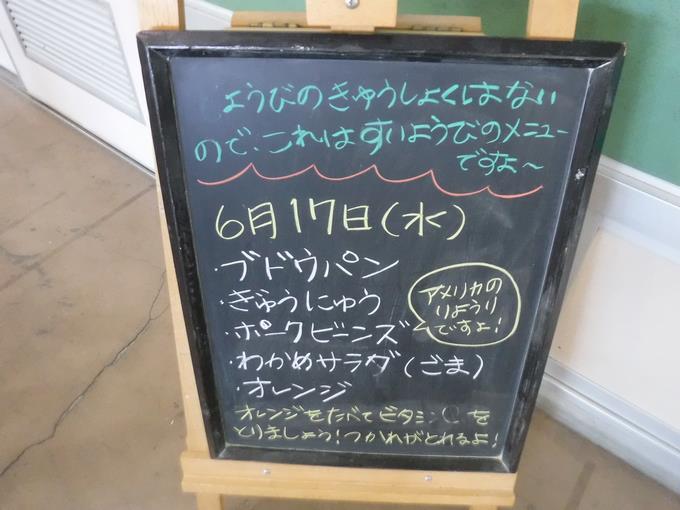 ようびのきゅうしょくはない
ので、これはすいようびのメニュー
ですよ～
6月17日(水)
・ブドウパン
・ぎゅうにゅう
・ポークビーンズ
アメリカの
りょうり
ですよ!
・わかめサラダ(ごま)
・オレンジ
オレンジをたべてビタミンCを
とりましょう!つかれがとれるよ!